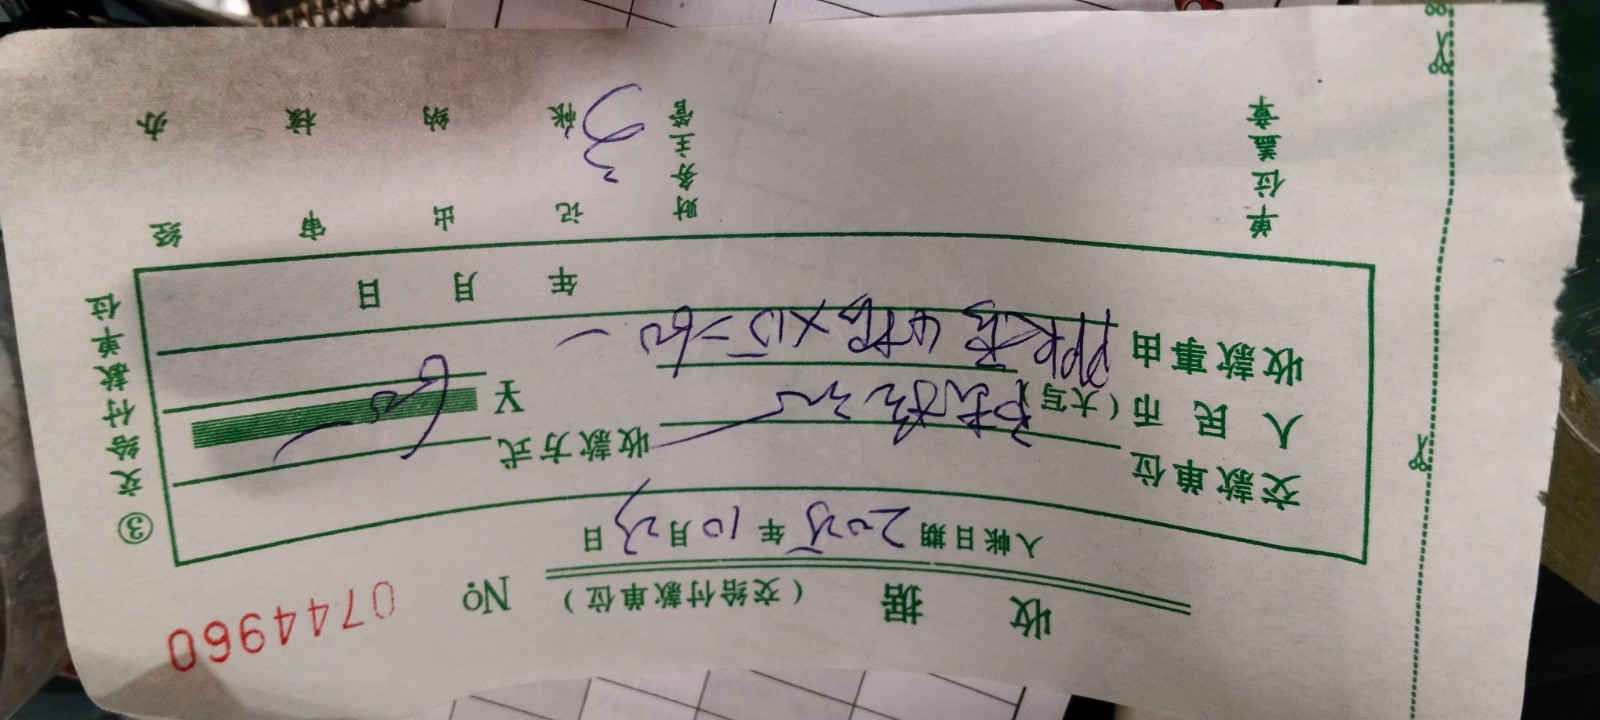 收 据 (交给付款单位) № 0744960
入帐日期 2025 年 10 月 23 日
交款单位 收款方式
人民币(大写) ¥ 60
收款事由 PPR 4根×15=60
年 月 日
单位盖章 财务主管 记帐 出纳 审核 经办
③交给付款单位